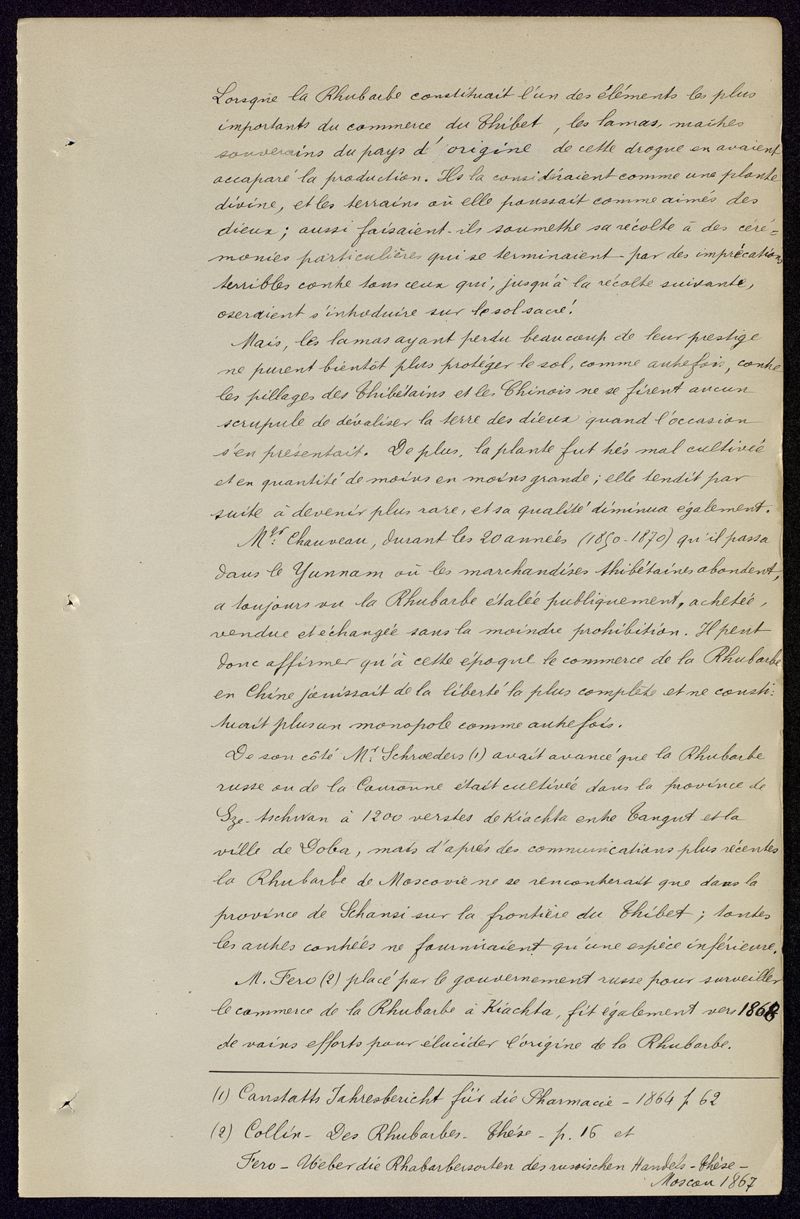 Lorsque la Rhubarbe constituait l'un des éléments les plus
importants du commerce du Thibet, les lamas, maîtres
souverains du pays d'origine de cette drogue en avaient
accaparé la production. Ils la considéraient comme une plante
divine, et les terrains où elle poussait comme aimés des
dieux; aussi faisaient-ils soumettre sa récolte à des céré-
monies particulières qui se terminaient par des imprécations
terribles contre tous ceux qui, jusqu'à la récolte suivante,
oseraient s'introduire sur le sol sacré.
Mais, les lamas ayant perdu beaucoup de leur prestige
ne purent bientôt plus protéger le sol, comme autrefois, contre
les pillages des Thibétains et les Chinois ne se firent aucun
scrupule de dévaliser la terre des dieux quand l'occasion
s'en présentait. De plus, la plante fut très mal cultivée
et en quantité de moins en moins grande; elle tendit par
suite à devenir plus rare, et sa qualité diminua également.
Mgr. Chauveau, durant les 20 années (1850-1870) qu'il passa
dans le Yunnam où les marchandises thibétaines abondent,
a toujours vu la Rhubarbe étalée publiquement, achetée,
vendue et échangée sans la moindre prohibition. Il peut
donc affirmer qu'à cette époque le commerce de la Rhubarbe
en Chine jouissait de la liberté la plus complète et ne consti-
tuait plus un monopole comme autrefois.
De son côté Mr. Schroeders (1) avait avancé que la Rhubarbe
russe ou de la Couronne était cultivée dans la province de
Sze-tschwan à 1200 verstes de Kiachta entre Tangut et la
ville de Doba, mais d'après des communications plus récentes
la Rhubarbe de Moscovie ne se rencontrerait que dans la
province de Schansi sur la frontière du Thibet; toutes
les autres contrées ne fourniraient qu'une espèce inférieure.
M. Fero (2) placé par le gouvernement russe pour surveiller
le commerce de la Rhubarbe à Kiachta, fit également vers
de vains efforts pour élucider l'origine de la Rhubarbe.
(1) Canstatts Jahresbericht für die Pharmacie - 1864 p 62
(2) Collin - Des Rhubarbes - Thèse - p. 16 et
Fero - Ueber die Rhabarbersorten des russischen Handels - Thèse -
Moscou 1867